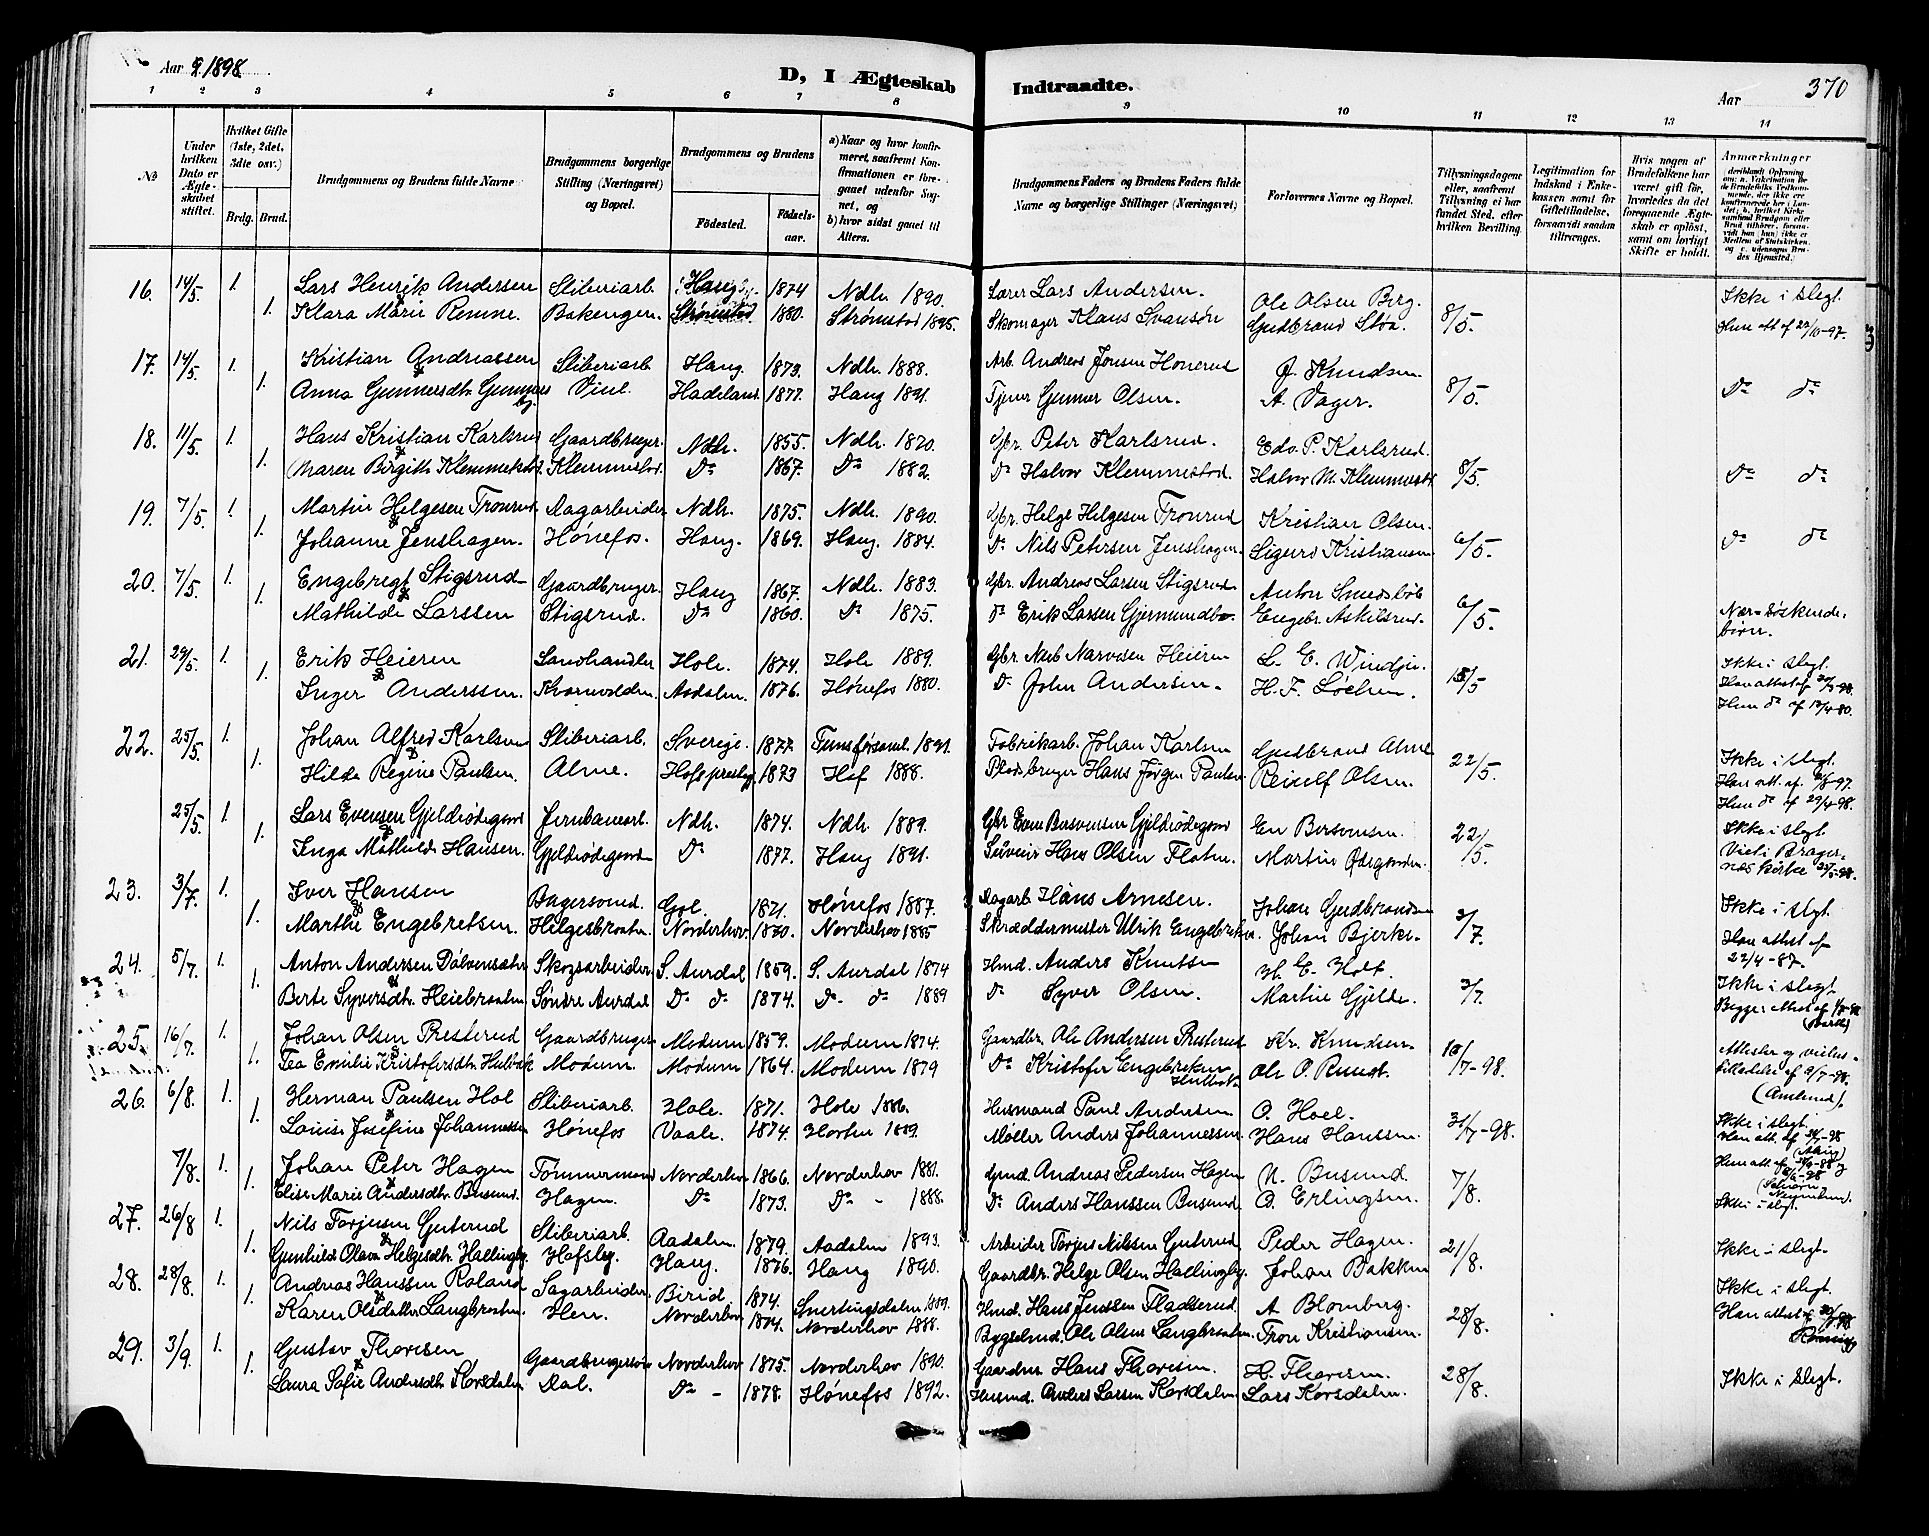 Aar 1898.
D, I Ægteskab Indtraadte.
Aar
370
1 2 3 4 5 6 7 8 9 10 11 12 13 14
No
Under hvilken Dato er Ægteskabet stiftet.
Hvilket Gifte (1ste, 2det, 3die osv.)
Brdg. Brud.
Brudgommens og Brudens fulde Navne
Brudgommens borgerlige Stilling (Næringsvei) og Bopæl.
Brudgommens og Brudens
Fødested.
Fødselsaar.
a) Naar og hvor konfirmeret, saafremt Konfirmationen er foregaaet udenfor Sognet, og
b) hvor sidst gaaet til Alters.
Brudgommens Faders og Brudens Faders fulde Navne og borgerlige Stillinger (Næringsvei)
Forlovernes Navne og Bopæl.
Tillysningsdagene eller, saafremt Tillysning ei har fundet Sted, efter hvilken Bevilling.
Legitimation for Indskud i Enkekassen samt for Giftetilladelse, forsaavidt saadan tiltrænges.
Hvis nogen af Brudefolkene har været gift før, hvorledes da det foregaaende Ægteskab er opløst, samt om lovligt Skifte er holdt.
Anmærkninger
16. 14/5. 1. Lars Henrik Andersen Sliberiarb. Haug 1874 Ndh. 1890. Lars Andersen. Ole Olsen Berg. Ikke i slegt.
1. Klara Marie Remne. Bakengen. Strømstad 1880. Strømstad 1895. Skomager Klaus Svansøn Gudbrand Støa. 8/5. Hun att af 22/10-97.
17. 14/5. 1. Kristian Andreassen Sliberiarb. Haug. 1873. Ndh. 1888. Arb. Andreas Jonsen Honerud J. Knudsen
1. Anna Gunnersdtr. Hadeland 1877. Haug 1891. Gunner Olsen. A. Vager. 8/5. Do do
18. 11/5. 1. Hans Kristian Karlsrud Gaardbruger. Ndh. 1855. Ndh. 1870. Gbr. Peter Karlsrud. Edv. P. Karlsrud.
1. Maren Birgitte Klemmestad. Klemmestad. Do 1867. Do 1882. Do Halvor Klemmestad. Halvor M. Klemmestad 8/5. Do do
19. 7/5. 1. Martin Helgesen Tronrud Dagarbeider Ndh. 1875. Ndh. 1890. Gbr. Helge Helgesen Tronrud Kristian Olsen.
1. Johanne Jenshagen. Hønefos. Haug. 1869. Haug. 1884. Do Nils Petersen Jenshagen. Sigurd Kristiansen 6/5. Do do
20. 7/5. 1. Engebregt Stigsrud Gaardbruger. Haug 1867. Ndh. 1883. Gbr. Andreas Larsen Stigsrud Anton
1. Mathilde Larssen Stigsrud. Do 1860. Do 1875. Do Erik Larsen Gjermundbo. Engebr. Askilsrud. 6/5. Nær søskendebørn.
21. 29/5. 1. Erik Heieren Landhandler Hole. 1874. Hole 1889. Gbr. Narvesen Heieren L. E. Windju. Ikke i slegt.
1. Inger Anderssen. Aadalen. 1876. Hønefos 1880. Do John Andersen. H. F. Løchen. 15/5
22. 25/5. 1. Johan Alfred Karlsen Sliberiarb. Sverige. 1877. 1891. Fabrikarb. Johan Karlsen Gudbrand Alme Ikke i slegt.
1. Hilda Regine Paulsen. Alme. 1873 Hof 1888. Pladsbruger Hans Jørgen Paulsen Reidulf Olsen. 22/5. Hun do af 29/4-98.
25/5. 1. Lars Evensen Gjeldrødegaard Jernbanearb. Ndh. 1874. Ndh. 1889. Gbr. Even Bersvensen Gjeldrødegaard En Bersvensen. Ikke i slegt.
1. Inga Mathilde Hansen. Gjeldrødegaard Do 1877. Haug 1891. Hans Olsen Flaten. Martin Ødegaarden. 22/5. Viet i Bragernæs kirke
23. 3/7. 1. Iver Hansen Bagersvend. Gol. 1871. Hønefos 1887. Dagarb. Hans Arnesen. Johan Gudbrandsen Ikke i slegt.
1. Marthe Engebretsen. Helgesbraaten. Norderhov. 1870. Norderhov 1885 Skræddermester Ulrik Engebretsen. Johan Bjerke. 3/7. Han attest af 22/4-87.
24. 5/7. 1. Anton Andersen Skogsarbeider S. Aurdal 1859. S. Aurdal 1874 Hmd. Anders Knutsen H. E. Holt. Ikke i slegt.
1. Berte Syversdtr. Heiebraaten Søndre Aurdal Do do 1874. Do do 1889 Do Syver Olsen. Martin Gjelde. 3/7.
25. 16/7. 1. Johan Olsen Presterud Gaardbruger Modum 1859. Modum 1874. Gaardbr. Ole Andersen Presterud Kr. Knudsen
1. Tea Emilie Kristofersdtr. Hulbak Modum. Modum 1864. Modum 1879 Do Kristofer Engebretsen Hulbak Ole P. Rundt. 10/7-98.
26. 6/8. 1. Herman Paulsen Hol Sliberiarb. Hole. 1871. Hole 1886. Husmand Paul Andersen O. Hoel. Ikke i slegt.
1. Louise Josefine Johannessen Hønefos Vaale. 1874. Horten 1889. Møller Anders Johannessen. Hans Hanssen. 31/7-98.
7/8. 1. Johan Peter Hagen Tømmermand Norderhov 1866. Norderhov 1881. Andreas Pedersen Hagen N. Busund.
1. Elise Marie Andersdtr. Busund. Hagen. Do 1873. Do - 1888. Do Anders Hanssen Busund. O. Erlingsen. 7/8. Ikke i slegt.
27. 26/8 1. Nils Torjusen Guterud Sliberiarb. Aadalen. 1879. Aadalen 1893. Arbeider Torjus Nilssen Guterud. Peder Hagen.
1. Gunhild Olava Helgesdtr. Hallingby Hofsby. Haug. 1876. Haug 1890. Gaardbr. Helge Olsen Hallingby. Johan Bakken 21/8. Ikke i slegt.
28. 28/8. 1. Andreas Hanssen Roland Sagarbeider. Birid. 1874. Snertingsdalen 1889. Hmd. Hans Jenssen Fladserud. A. Blomberg. Ikke i slegt.
1. Karen Olsdatter Langbraaten Hen. Norderhov 1874. Norderhov 1888. Ole Olsen Langbraaten. Tron Kristiansen. 28/8.
29. 3/9. 1. Gustav Thoresen Gaardbrugersøn Norderhov 1875. Norderhov 1890. Hans Thoresen. H. Thoresen.
1. Laura Sofie Andersdtr. Korsdalen Dal. Do - 1878. Hønefos 1892. Husmd. Anders Larsen Korsdalen. Lars Korsdalen. 28/8. Ikke i slegt.